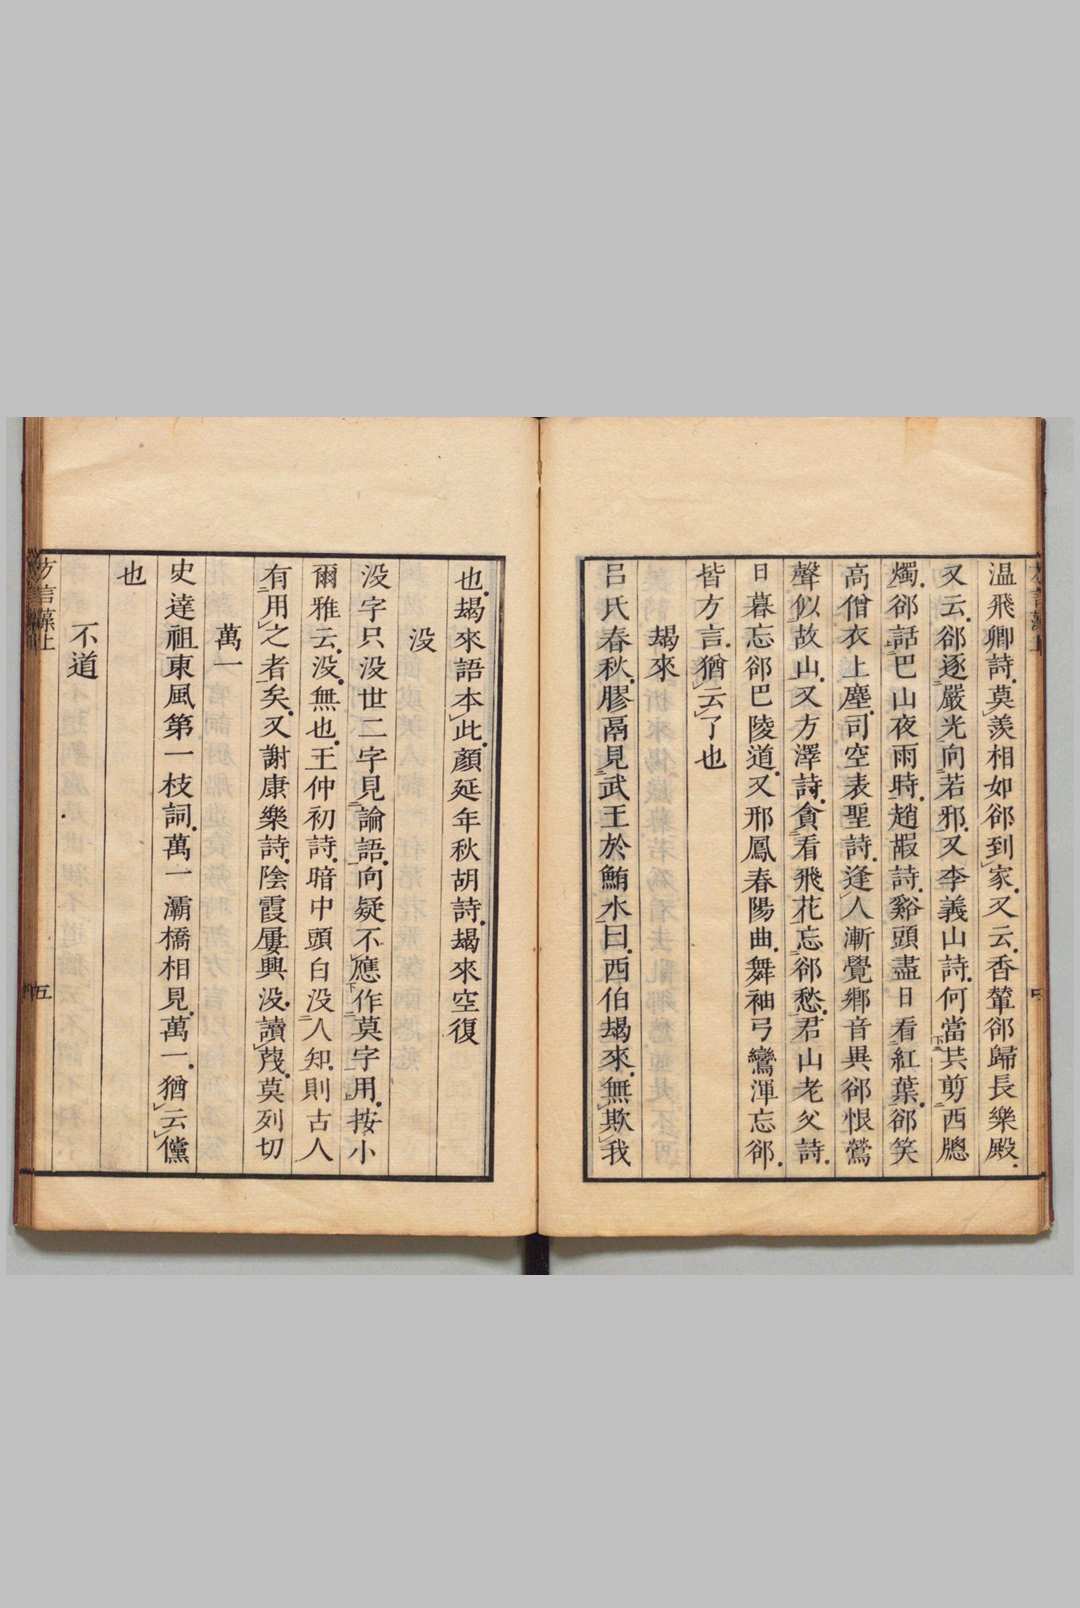 温飛卿詩莫羨相如郤到家又云香輦郤歸長樂殿
又云郤逐嚴光向若邪又李義山詩何當共剪西牕
燭郤話巴山夜雨時趙嘏詩谿頭盡日看紅葉郤笑
高僧衣上塵司空表聖詩逢人漸覺鄉音異郤恨鶯
聲似故山又方澤詩貪看飛花忘郤愁君山老父詩
日暮忘郤巴陵道又邢鳳春陽曲舞袖弓鸞渾忘郤
皆方言猶云了也
朅來
呂氏春秋膠鬲見武王於鮪水曰西伯朅來無欺我
也朅來語本此顏延年秋胡詩朅來空復
没
没字只没世二字見論語向疑不應作莫字用按小
爾雅云没無也王仲初詩暗中頭白没人知則古人
有用之者矣又謝康樂詩陰霞屢興没讀蔑莫列切
萬一
史達祖東風第一枝詞萬一灞橋相見萬一猶云儻
也
不道
方言藻上
五